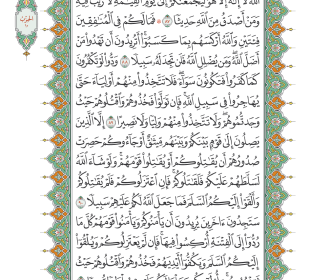 ٱللَّهُ لَآ إِلَٰهَ إِلَّا هُوَ لَيَجْمَعَنَّكُمْ إِلَىٰ يَوْمِ ٱلْقِيَٰمَةِ لَا رَيْبَ فِيهِ
وَمَنْ أَصْدَقُ مِنَ ٱللَّهِ حَدِيثًا ۝ فَمَا لَكُمْ فِى ٱلْمُنَٰفِقِينَ
فِئَتَيْنِ وَٱللَّهُ أَرْكَسَهُم بِمَا كَسَبُوٓا۟ أَتُرِيدُونَ أَن تَهْدُوا۟ مَنْ
أَضَلَّ ٱللَّهُ وَمَن يُضْلِلِ ٱللَّهُ فَلَن تَجِدَ لَهُۥ سَبِيلًا ۝ وَدُّوا۟ لَوْ تَكْفُرُونَ
كَمَا كَفَرُوا۟ فَتَكُونُونَ سَوَآءً فَلَا تَتَّخِذُوا۟ مِنْهُمْ أَوْلِيَآءَ حَتَّىٰ
يُهَاجِرُوا۟ فِى سَبِيلِ ٱللَّهِ فَإِن تَوَلَّوْا۟ فَخُذُوهُمْ وَٱقْتُلُوهُمْ حَيْثُ
وَجَدتُّمُوهُمْ وَلَا تَتَّخِذُوا۟ مِنْهُمْ وَلِيًّا وَلَا نَصِيرًا ۝ إِلَّا ٱلَّذِينَ
يَصِلُونَ إِلَىٰ قَوْمٍۭ بَيْنَكُمْ وَبَيْنَهُم مِّيثَٰقٌ أَوْ جَآءُوكُمْ حَصِرَتْ
صُدُورُهُمْ أَن يُقَٰتِلُوكُمْ أَوْ يُقَٰتِلُوا۟ قَوْمَهُمْ وَلَوْ شَآءَ ٱللَّهُ
لَسَلَّطَهُمْ عَلَيْكُمْ فَلَقَٰتَلُوكُمْ فَإِنِ ٱعْتَزَلُوكُمْ فَلَمْ يُقَٰتِلُوكُمْ
وَأَلْقَوْا۟ إِلَيْكُمُ ٱلسَّلَمَ فَمَا جَعَلَ ٱللَّهُ لَكُمْ عَلَيْهِمْ سَبِيلًا ۝
سَتَجِدُونَ ءَاخَرِينَ يُرِيدُونَ أَن يَأْمَنُوكُمْ وَيَأْمَنُوا۟ قَوْمَهُمْ كُلَّ مَا
رُدُّوٓا۟ إِلَى ٱلْفِتْنَةِ أُرْكِسُوا۟ فِيهَا فَإِن لَّمْ يَعْتَزِلُوكُمْ وَيُلْقُوٓا۟
إِلَيْكُمُ ٱلسَّلَمَ وَيَكُفُّوٓا۟ أَيْدِيَهُمْ فَخُذُوهُمْ وَٱقْتُلُوهُمْ حَيْثُ